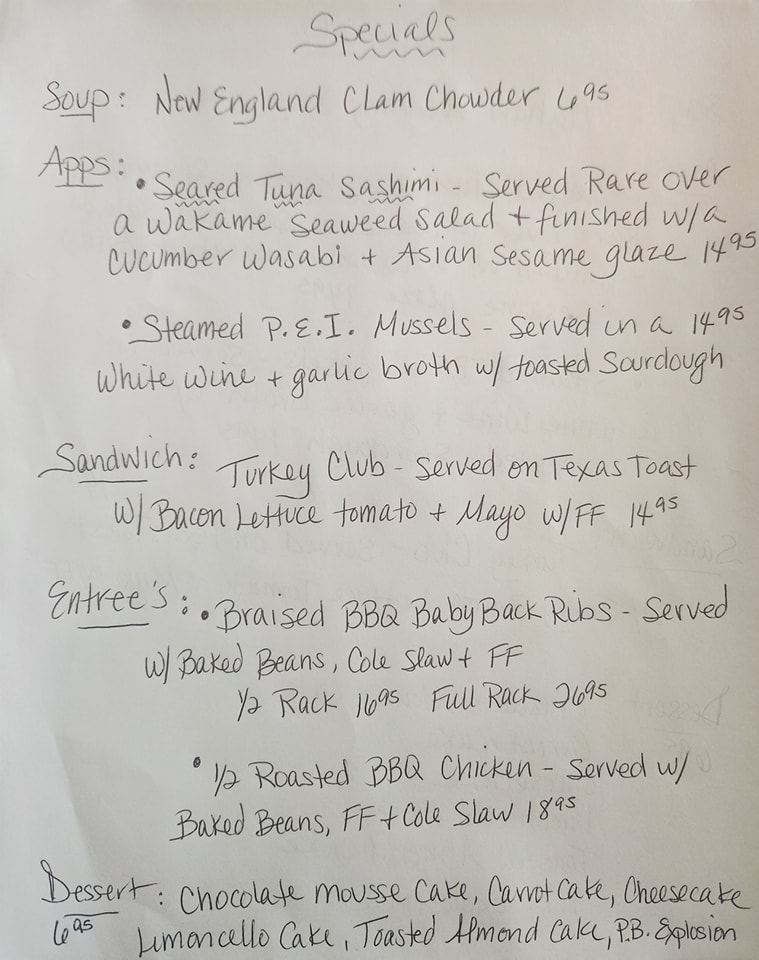 Specials
Soup: New England Clam Chowder 6 95
Apps:
• Seared Tuna Sashimi - Served Rare over
a Wakame Seaweed Salad + finished w/a
cucumber Wasabi + Asian Sesame glaze 14 95
• Steamed P.E.I. Mussels - Served in a 14 95
White wine + garlic broth w/ toasted Sourdough
Sandwich: Turkey Club - Served on Texas Toast
W/ Bacon Lettuce tomato + Mayo w/FF 14 95
Entree's: • Braised BBQ Baby Back Ribs - Served
w/ Baked Beans, Cole Slaw + FF
1/2 Rack 16 95 Full Rack 26 95
• 1/2 Roasted BBQ Chicken - Served w/
Baked Beans, FF + Cole Slaw 18 95
Dessert: Chocolate mousse Cake, Carrot Cake, Cheesecake
6 95 Limoncello Cake, Toasted Almond Cake, P.B. Explosion